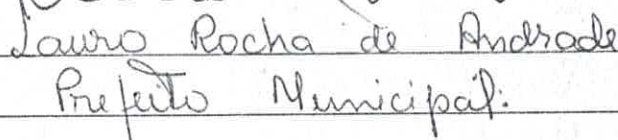 Lauro Rocha de Andrade
Prefeito Municipal.